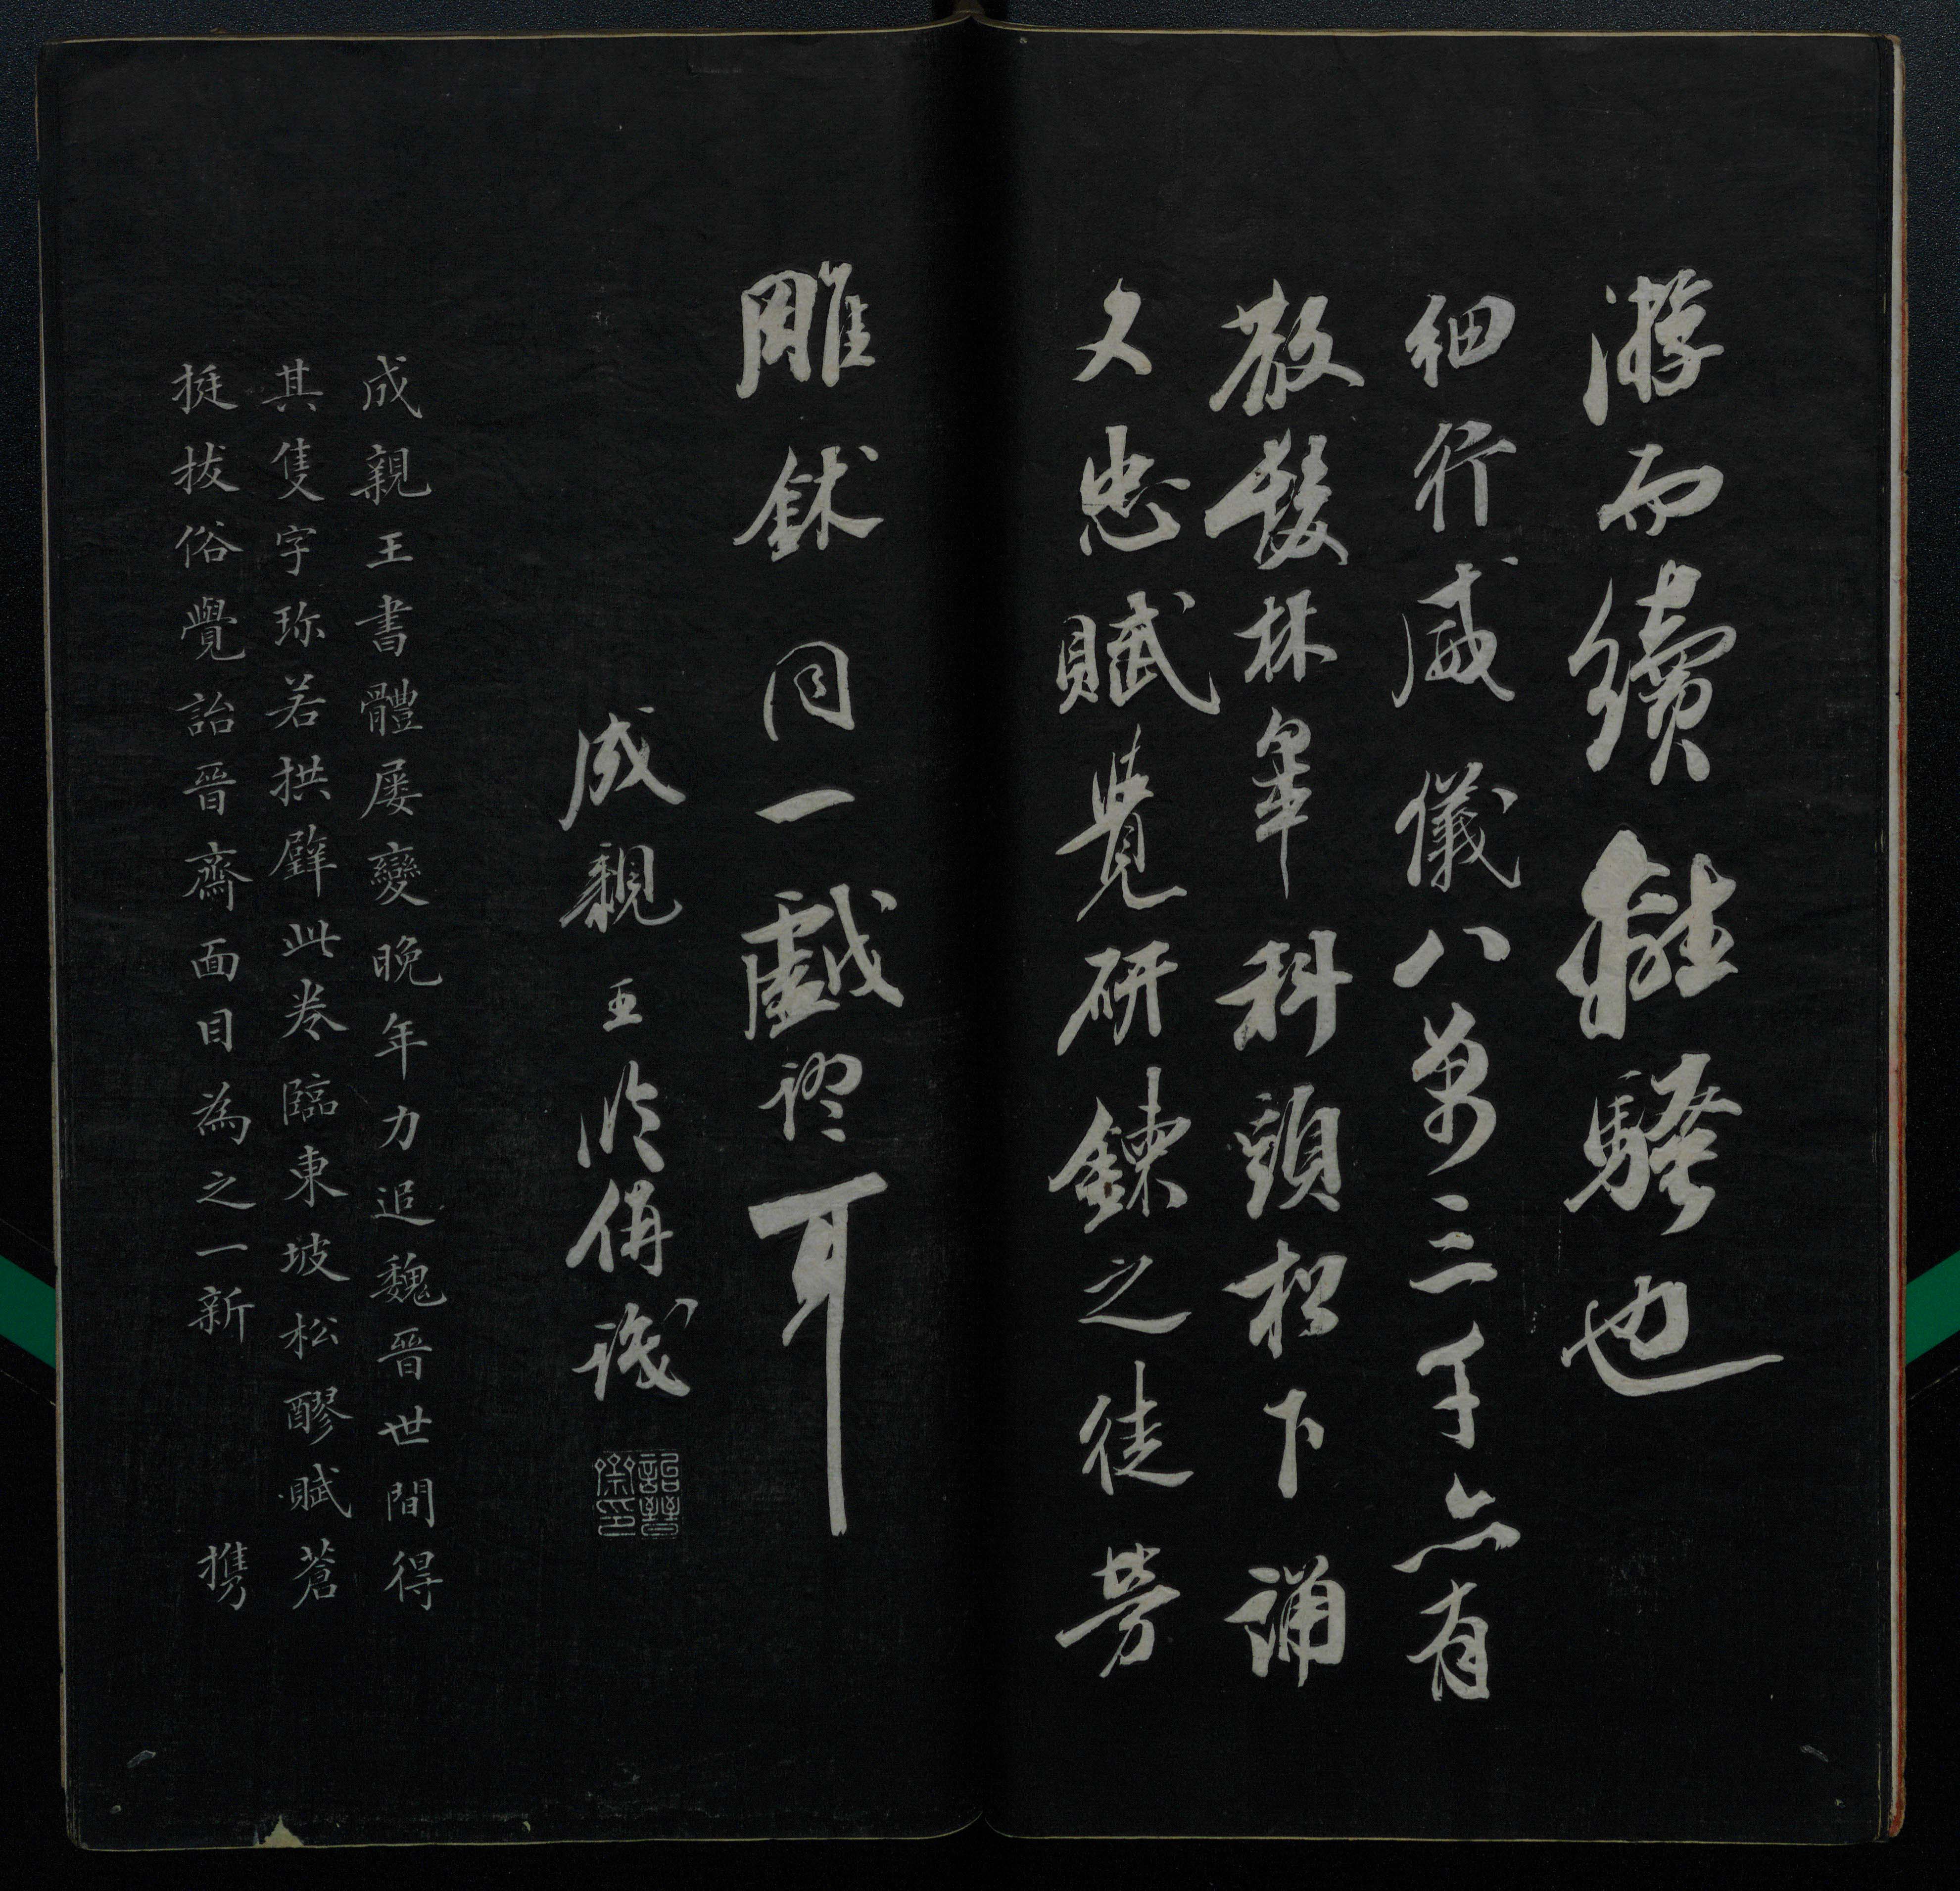 游而續離騷也
細行威儀八萬三千亦有
散髮林皋科頭松下誦
文忠賦覺研鍊之徒勞
雕鉥同一戲耳
成親王臨併識
詒晉齋印
成親王書體屢變晚年力追魏晉世間得
其隻字珎若拱璧此卷臨東坡松醪賦蒼
挺拔俗覺詒晉齋面目為之一新 携